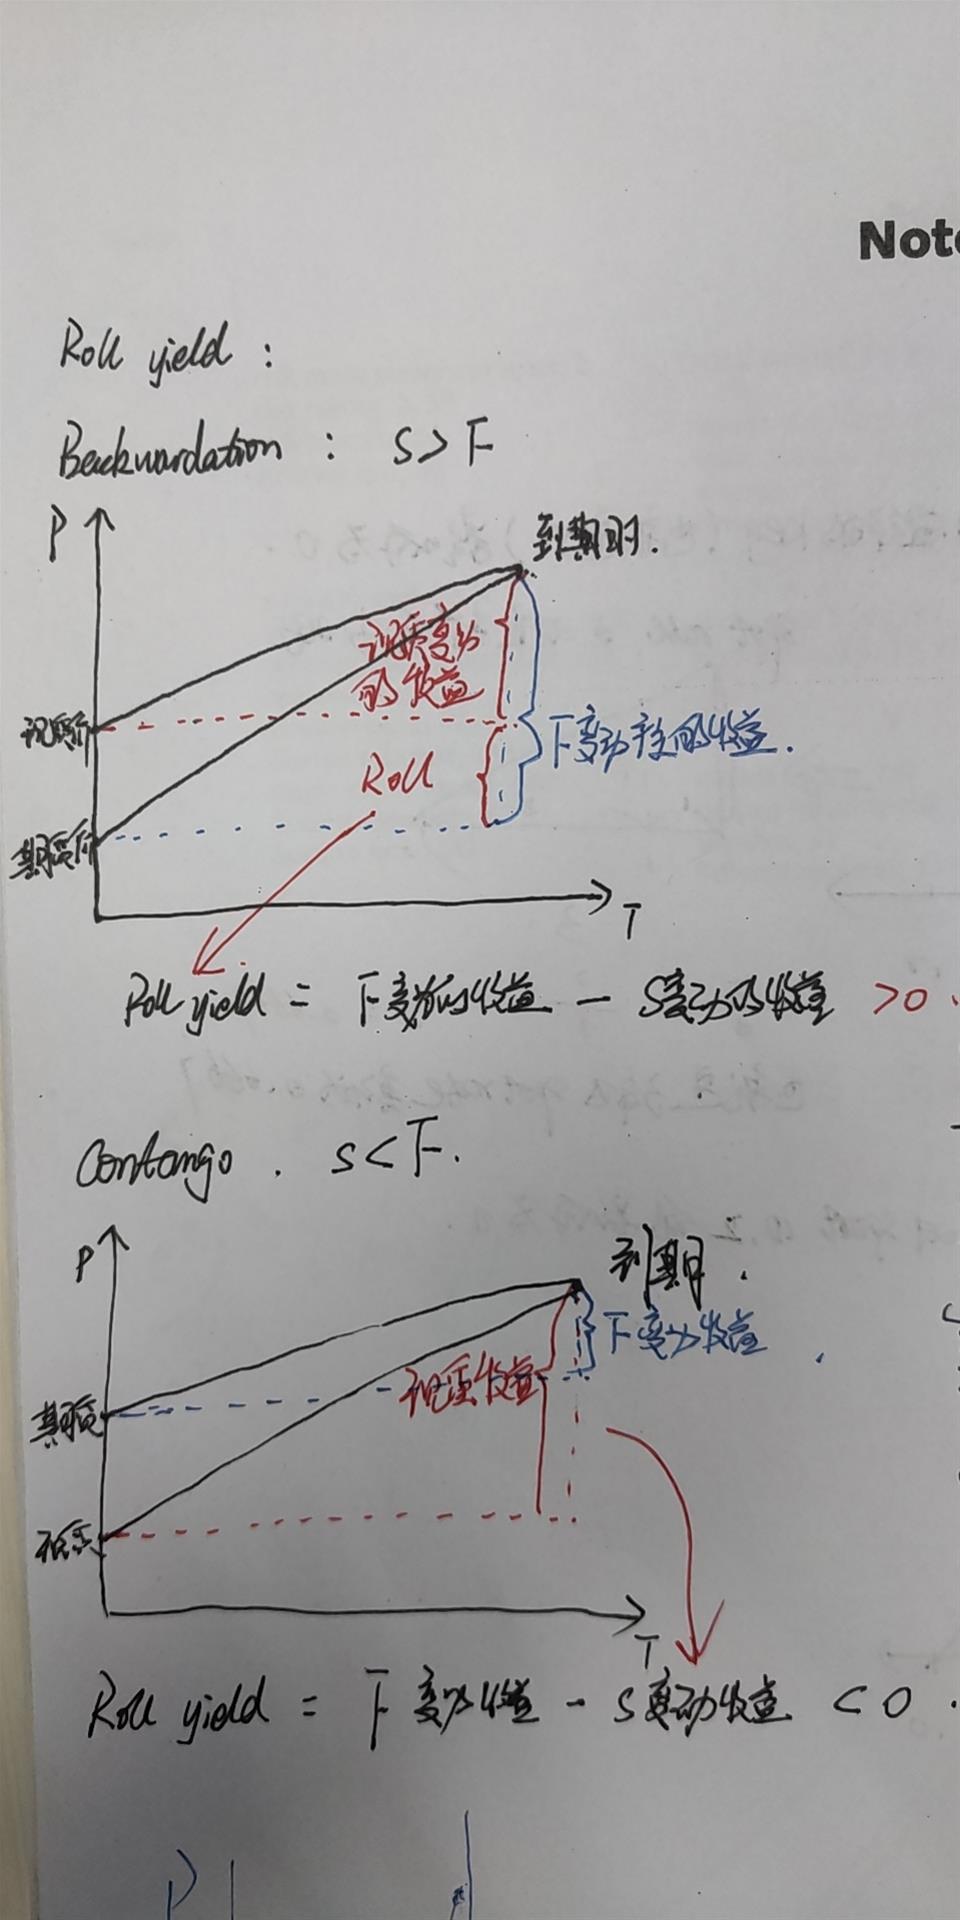 Note
Roll yield :
Backwardation : S > F
P
到期时.
现货变动
的收益
现货价
Roll
F变动产生的收益.
期货价
T
Roll yield = F变动的收益 - S变动的收益 >0.
Contango . S<F.
P
到期 .
F变动收益
现货收益
期货
现货
T
Roll yield = F变动收益 - S变动收益 <0.
P